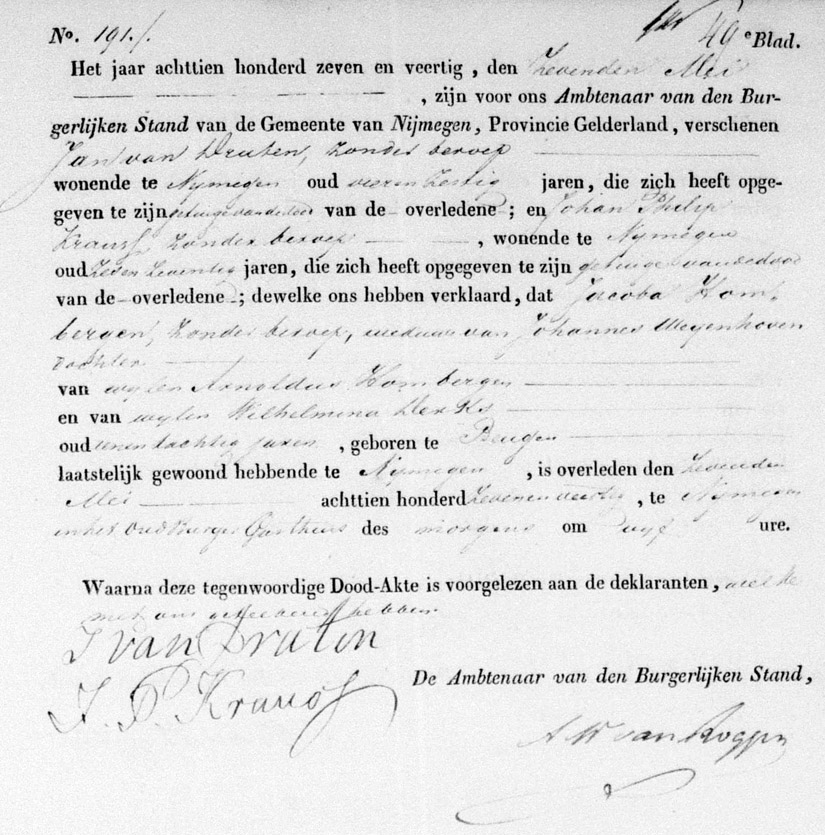 No. 191./. 49e Blad.
Het jaar achttien honderd zeven en veertig, den Zevenden Mei
, zijn voor ons Ambtenaar van den Bur-
gerlijken Stand van de Gemeente van Nijmegen, Provincie Gelderland, verschenen
Jan van Druten, zonder beroep
wonende te Nymegen oud vier en zestig jaren, die zich heeft opge-
geven te zijn getuige van de dood van de overledene; en Johan Philip
Krauss zonder beroep , wonende te Nymegen
oud zeven zeventig jaren, die zich heeft opgegeven te zijn getuige van de dood
van de overledene; dewelke ons hebben verklaard, dat Jacoba Hom,
bergen, zonder beroep, weduwe van Johannes Meyenhoven
dochter
van wylen Arnoldus Hombergen
en van wylen Wilhelmina Derks
oud een en tachtig jaren , geboren te Beugen
laatstelijk gewoond hebbende te Nymegen , is overleden den Zevenden
Mei achttien honderd Zeven en veertig , te Nymegen
in het Oud Burger Gasthuis des morgens om vyf ure.
Waarna deze tegenwoordige Dood-Akte is voorgelezen aan de deklaranten, welke
met ons geteekend hebben
J van Druten
J. P. Krauss
De Ambtenaar van den Burgerlijken Stand,
A W van Roggen